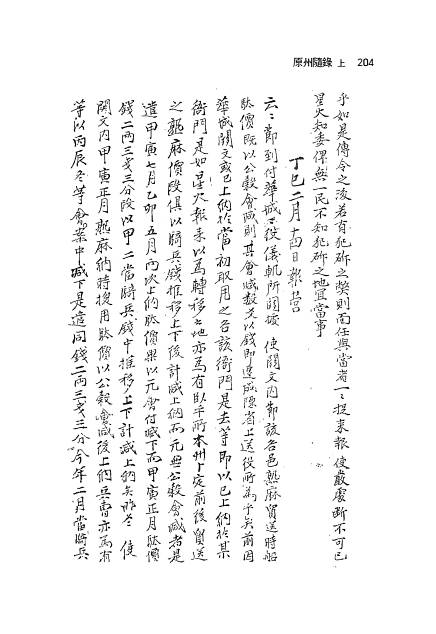 原州隨錄 上 204
乎如是傳令之後若有犯斫之獘則面任與當者一一捉來報 使嚴處斷不可已
星火知委俾無一民不知犯斫之地宜當事
丁巳二月十四日報營
云云節到付華城役儀軌所關據 使關文內節該各邑熟麻貿送時船
䭾價既以公穀會減則其會減數爻以錢即速成陳省上送役所爲乎矣前因
華城關文或已上納於當初取用之各該衙門是去等即以已上納於某
衙門是如星火報來以爲轉移之地亦爲有臥乎所本州卜定前後貿送
之熟麻價段俱以騎兵錢推移上下後計減上納而元無公穀會減者是
遣甲寅七月乙卯五月兩次上納䭾價果以元會付減下而甲寅正月䭾價
錢二兩三戔三分段以甲二當騎兵錢中推移上下計減上納矣昨冬 使
關文內甲寅正月熟麻納時用䭾價以公穀會減後上納兵曹亦爲有
等以丙辰冬等會案中減下是遣同錢二兩三戔三分今年二月當騎兵